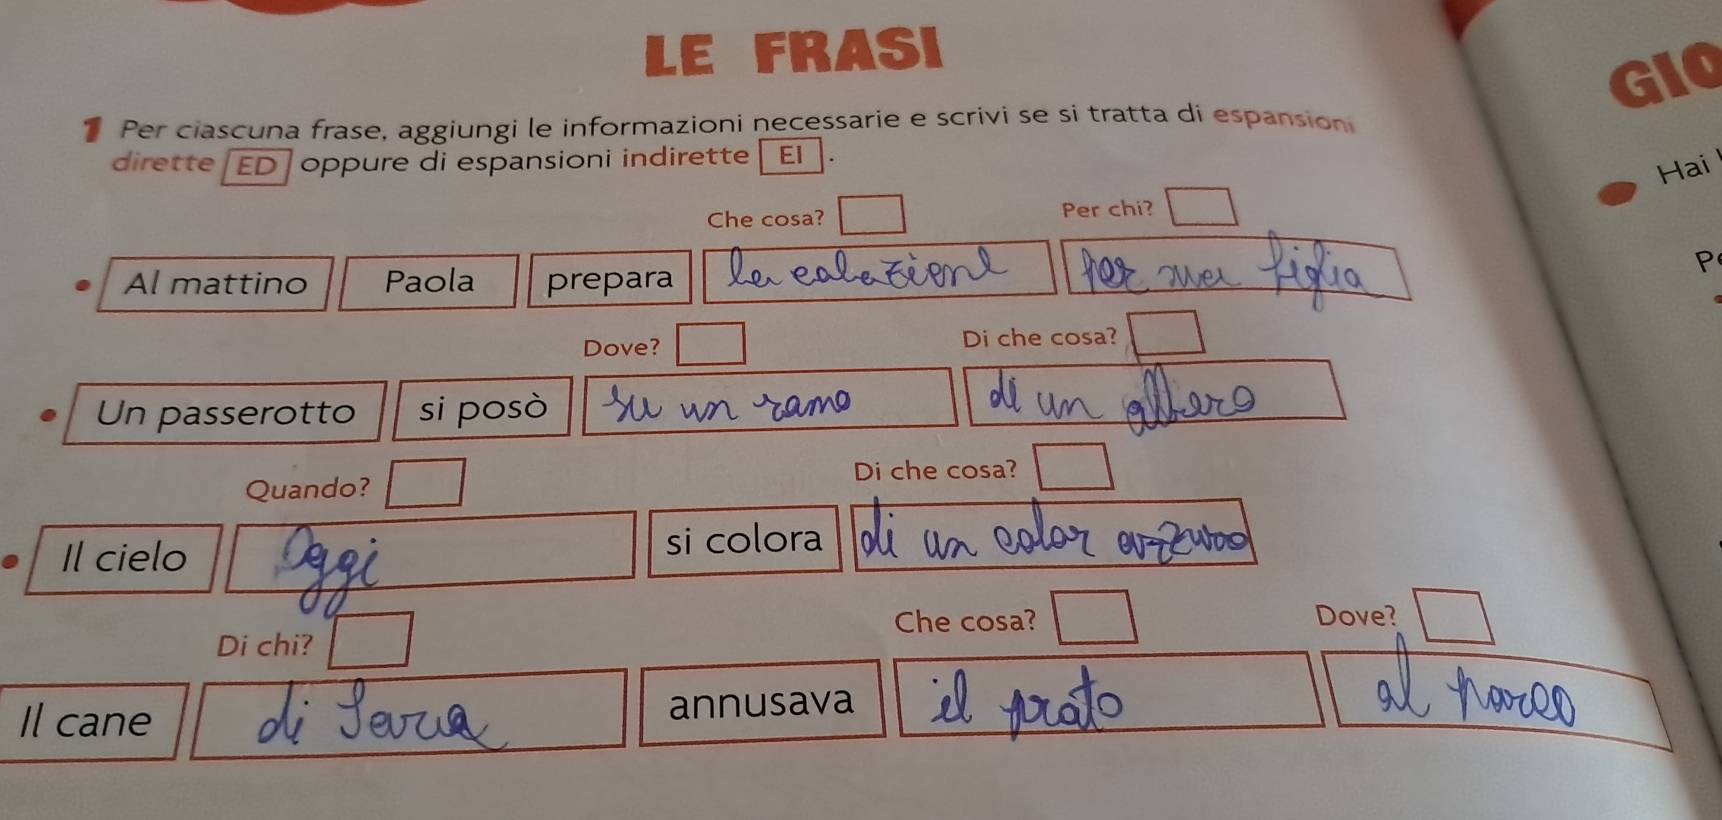 LE FRASI
GIO
1 Per ciascuna frase, aggiungi le informazioni necessarie e scrivi se si tratta di espansioni
dirette ED oppure di espansioni indirette EI .
Hai
Che cosa? Per chi?
• Al mattino Paola prepara la colazione per sua figlia
Dove? Di che cosa?
• Un passerotto si posò su un ramo di un albero
Quando? Di che cosa?
• Il cielo Oggi si colora di un color azzurro
Di chi? Che cosa? Dove?
Il cane di annusava il prato al parco